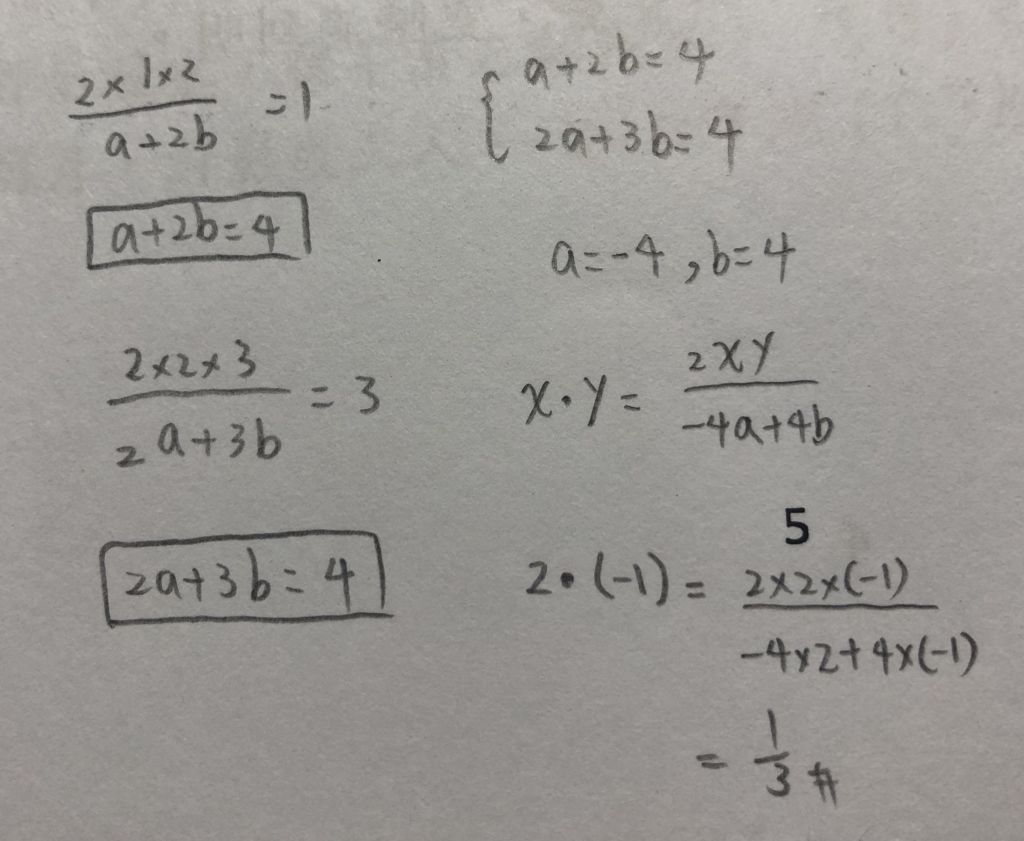 2×1×2
a+2b
=1
a+2b=4
2×2×3
2a+3b
=3
2a+3b=4
{
a+2b=4
2a+3b=4
a=-4,b=4
x·y=
2xy
-4a+4b
5
2·(-1)=
2×2×(-1)
-4×2+4×(-1)
=
1
3
#